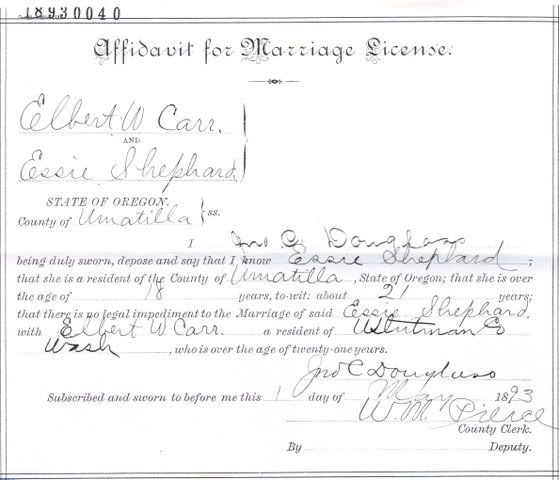 18930040
Affidavit for Marriage License.
Elbert W Carr.
AND
Essie Shephard
STATE OF OREGON.
County of Umatilla } ss.
I Jno C Douglass
being duly sworn, depose and say that I know Essie Shephard ;
that she is a resident of the County of Umatilla , State of Oregon; that she is over
the age of 18 years, to-wit: about 21 years;
that there is no legal impediment to the Marriage of said Essie Shephard
with Elbert W Carr. a resident of Whitman Co
Wash , who is over the age of twenty-one years.
Jno C Douglass
Subscribed and sworn to before me this 1 day of May 1893
W. M. Pierce
County Clerk.
By Deputy.